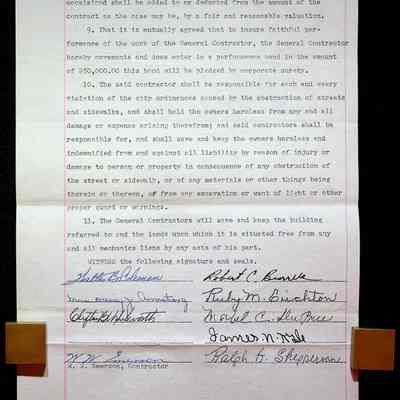 occasioned shall be added to or deducted from the amount of the
contract as the case may be, by a fair and reasonable valuation.
9. That it is mutually agreed that to insure faithful per-
formance of the work of the General Contractor, the General Contractor
hereby covenants and does enter in a performance bond in the amount
of $50,000.00 this bond will be pledged by corporate surety.
10. The said contractor shall be responsible for each and every
violation of the city ordinances caused by the obstruction of streets
and sidewalks, and shall hold the owners harmless from any and all
damage or expense arising therefrom; and said contractors shall be
responsible for, and shall save and keep the owners harmless and
indemnified from and against all liability by reason of injury or
damage to person or property in consequence of any obstruction of
the street or sidewalk, or of any materials or other things being
therein or thereon, of from any excavation or want of light or other
proper guard or warnings.
11. The General Contractors will save and keep the building
referred to and the lands upon which it is situated free from any
and all mechanics liens by any acts of his part.
WITNESS the following signature and seals.
Coleman Robert C.
Armstrong Ruby M. Brighton
Mabel C.
James N.
W. W. Emerson Ralph
Emerson, Contractor